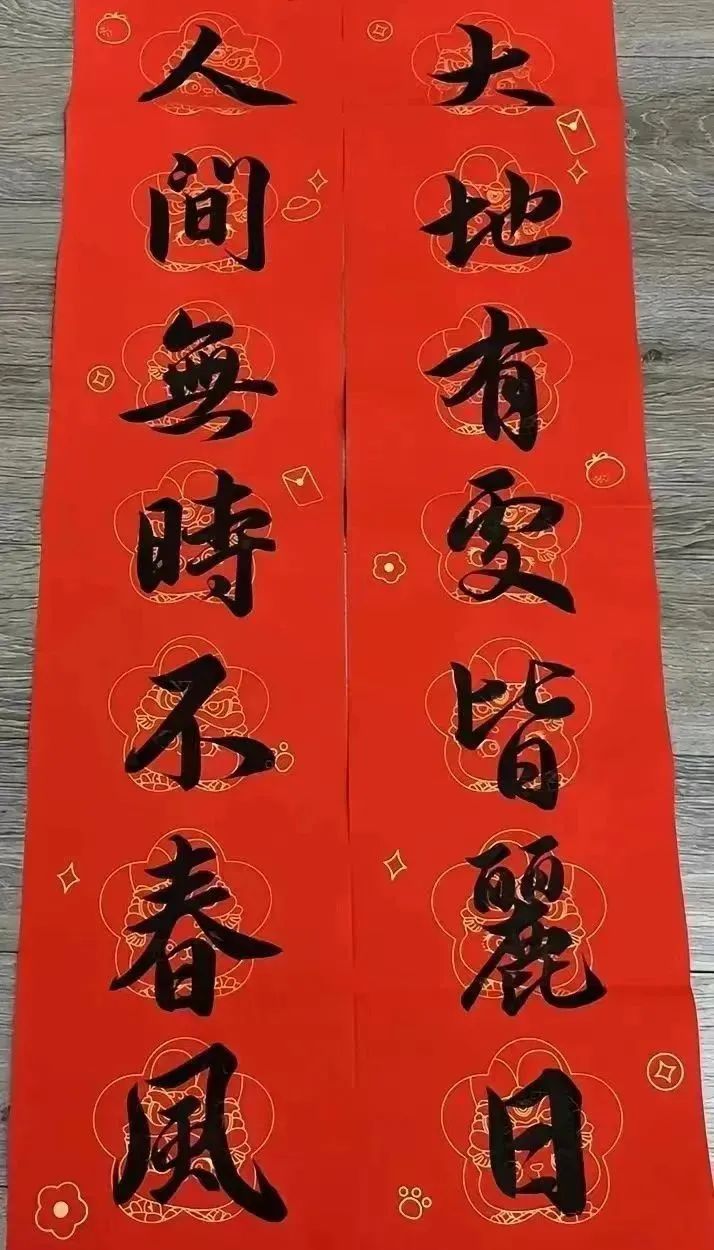 大地有處皆麗日
人間無時不春風